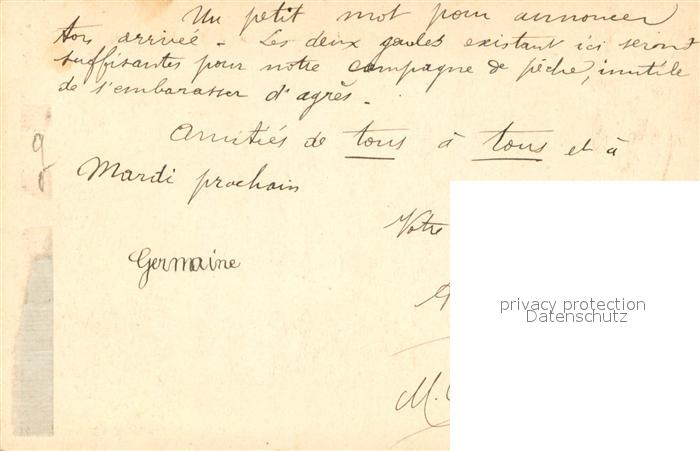 Un petit mot pour annoncer
ton arrivée. Les deux gaules existant ici seront
suffisantes pour notre campagne de pêche, inutile
de s'embarasser d'agrès.
Amitiés de tous à tous et à
Mardi prochain
Votre
Germaine
privacy protection
Datenschutz
M.